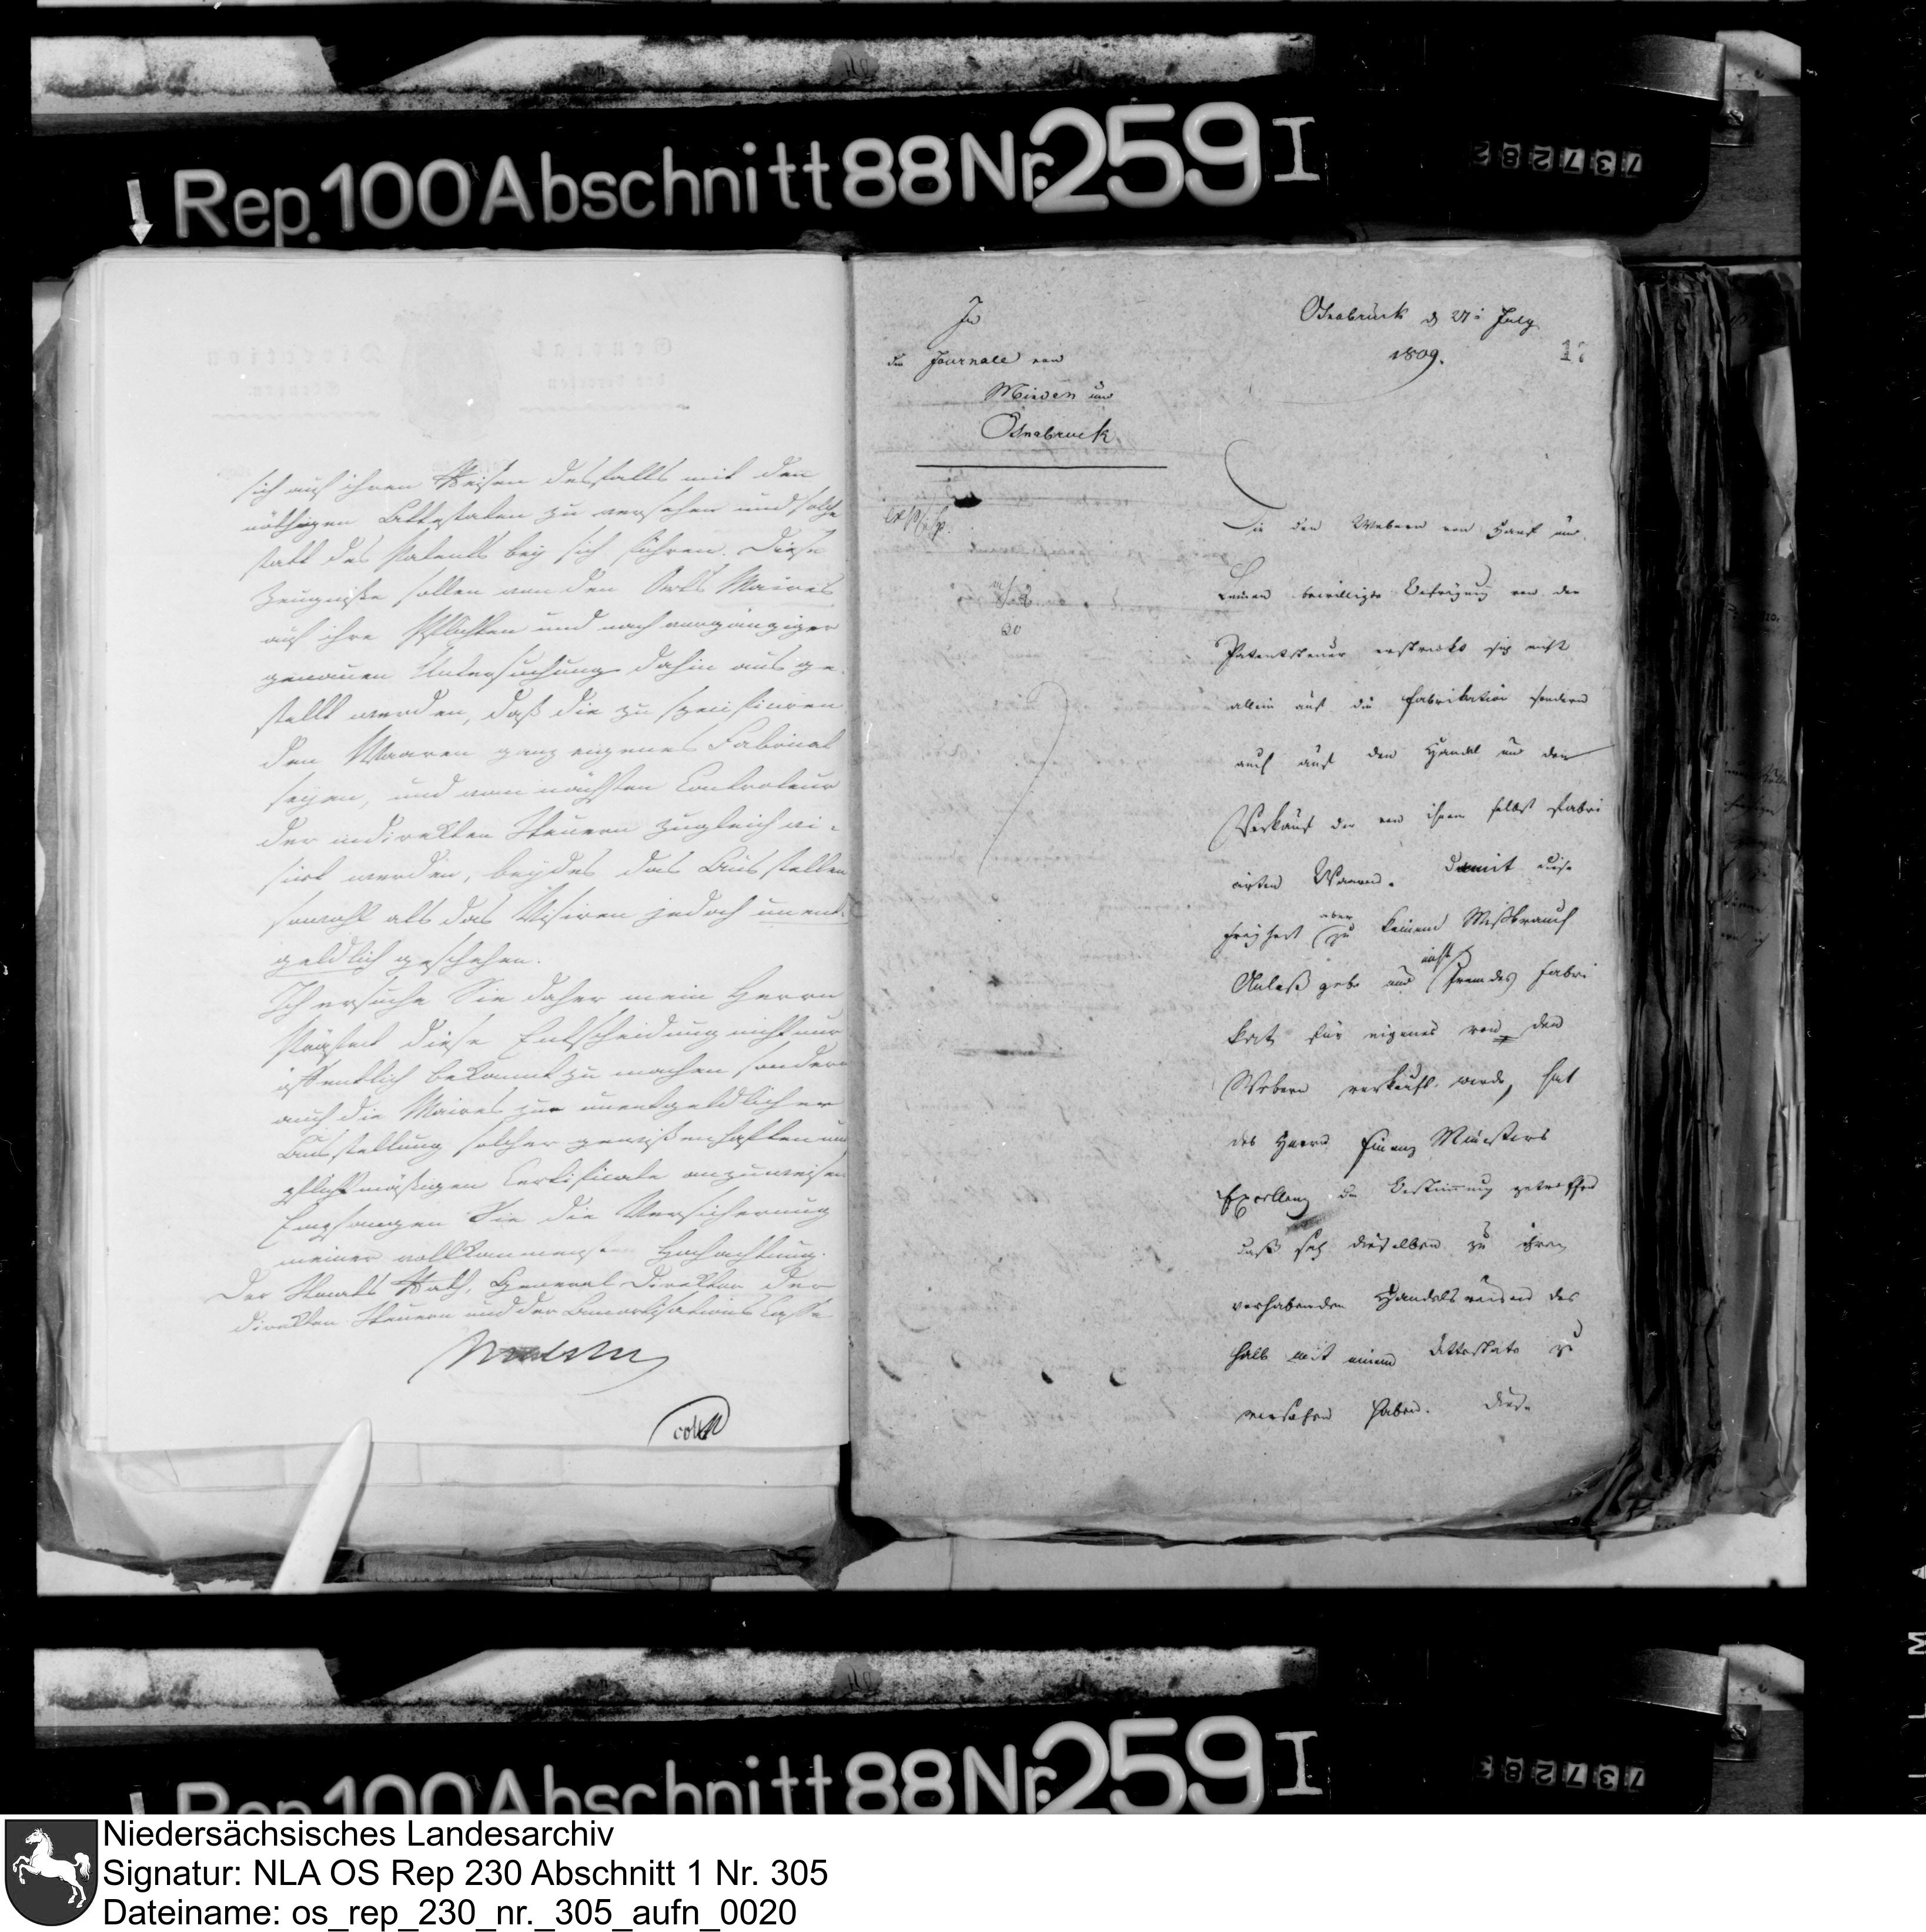 Rep. 100 Abschnitt 88 Nr. 259 I
737282
sich auf ihren Reisen desfalls mit den
nöthigen Attestaten zu versehen und solche
statt des Patents bey sich führen. Diese
Zeugniße sollen von den Orts Maires
auf ihre Pflichten und nach vorgängiger
genauen Untersuchung dahin ausge-
stellt werden, daß die zu specificiren
den Waaren ganz eigenes Fabricat
seyen, und vom nächsten Controleur
der indirekten Steuern zugleich vi-
sirt werden, beydes das Ausstellen
sowohl als das Visiren jedoch unent-
geldlich geschehen.
Ich ersuche Sie daher mein Herrn
Präfect diese Entscheidung nicht nur
öffentlich bekannt zu machen sondern
auch die Maires zur unentgeldlichen
Ausstellung solcher gewißenhaften und
pflichtmäßigen Certificate anzuweisen
Empfangen Sie die Versicherung
meiner vollkommensten Hochachtung.
Der Staats Rath, General Direktor der
direkten Steuern und der Amortisations Casse
In
die Journale von
Minden und
Osnabruck
Osnabruck d 27t July
1809.
20
Die den Webern von Hanf und
Leinen bewilligte Befreyung von der
Patentsteuer erstreckt sich nicht
allein auf die Fabrikation sondern
auch auf den Handel und den
Verkauf der von ihnen selbst fabri
cirten Waaren. Damit diese
Freyheit aber zu keinem Mißbrauch
Anlaß gebe und nicht fremdes Fabri
kat für eigenes von den
Webern verkauft werde, hat
des Herrn Finanz Ministers
Excellenz die Bestimmung getroffen
daß sich dieselben zu ihren
vorhabenden Handelsreisen des
halb mit einem Atteste zu
versehen haben. Diese
Rep. 100 Abschnitt 88 Nr. 259 I
737283
Niedersächsisches Landesarchiv
Signatur: NLA OS Rep 230 Abschnitt 1 Nr. 305
Dateiname: os_rep_230_nr._305_aufn_0020